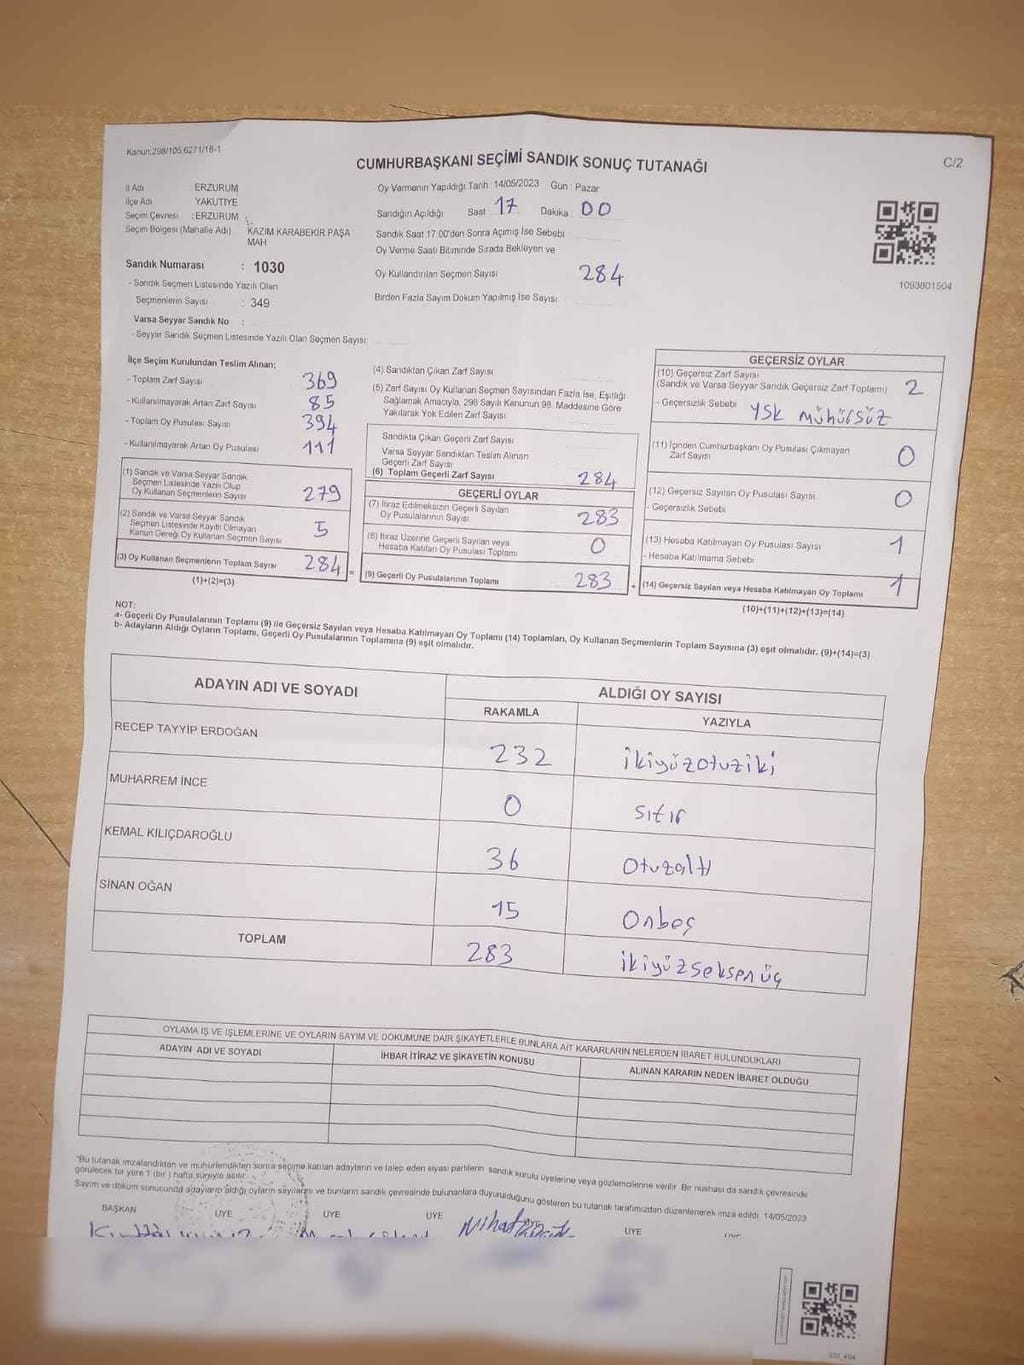 Kanun:298/105,6271/16-1
CUMHURBAŞKANI SEÇİMİ SANDIK SONUÇ TUTANAĞI
C/2
İl Adı ERZURUM
İlçe Adı YAKUTİYE
Seçim Çevresi : ERZURUM
Seçim Bölgesi (Mahalle Adı) KAZIM KARABEKİR PAŞA
MAH
Oy Vermenin Yapıldığı Tarih 14/05/2023 Gün : Pazar
Sandığın Açıldığı Saat 17 Dakika 00
Sandık Saat 17.00'den Sonra Açılmış İse Sebebi
Oy Verme Saati Bitiminde Sırada Bekleyen ve
Oy Kullandırılan Seçmen Sayısı 284
Birden Fazla Sayım Döküm Yapılmış İse Sayısı
1093801504
Sandık Numarası : 1030
- Sandık Seçmen Listesinde Yazılı Olan
Seçmenlerin Sayısı : 349
Varsa Seyyar Sandık No :
- Seyyar Sandık Seçmen Listesinde Yazılı Olan Seçmen Sayısı:
İlçe Seçim Kurulundan Teslim Alınan;
- Toplam Zarf Sayısı 369
- Kullanılmayarak Artan Zarf Sayısı 85
- Toplam Oy Pusulası Sayısı 394
- Kullanılmayarak Artan Oy Pusulası 111
(1) Sandık ve Varsa Seyyar Sandık
Seçmen Listesinde Yazılı Olup
Oy Kullanan Seçmenlerin Sayısı 279
(2) Sandık ve Varsa Seyyar Sandık
Seçmen Listesinde Kayıtlı Olmayan
Kanun Gereği Oy Kullanan Seçmen Sayısı 5
(3) Oy Kullanan Seçmenlerin Toplam Sayısı 284 =
(1)+(2)=(3)
(4) Sandıktan Çıkan Zarf Sayısı
(5) Zarf Sayısı Oy Kullanan Seçmen Sayısından Fazla İse, Eşitliği
Sağlamak Amacıyla, 298 Sayılı Kanunun 98. Maddesine Göre
Yakılarak Yok Edilen Zarf Sayısı
Sandıkta Çıkan Geçerli Zarf Sayısı
Varsa Seyyar Sandıktan Teslim Alınan
Geçerli Zarf Sayısı
(6) Toplam Geçerli Zarf Sayısı 284
GEÇERLİ OYLAR
(7) İtiraz Edilmeksizin Geçerli Sayılan
Oy Pusulalarının Sayısı 283
(8) İtiraz Üzerine Geçerli Sayılan veya
Hesaba Katılan Oy Pusulası Toplamı 0
(9) Geçerli Oy Pusulalarının Toplamı 283 +
GEÇERSİZ OYLAR
(10) Geçersiz Zarf Sayısı
(Sandık ve Varsa Seyyar Sandık Geçersiz Zarf Toplamı) 2
- Geçersizlik Sebebi YSK mühürsüz
(11) İçinden Cumhurbaşkanı Oy Pusulası Çıkmayan
Zarf Sayısı 0
(12) Geçersiz Sayılan Oy Pusulası Sayısı 0
- Geçersizlik Sebebi
(13) Hesaba Katılmayan Oy Pusulası Sayısı 1
- Hesaba Katılmama Sebebi
(14) Geçersiz Sayılan veya Hesaba Katılmayan Oy Toplamı 1
(10)+(11)+(12)+(13)=(14)
NOT:
a- Geçerli Oy Pusulalarının Toplamı (9) ile Geçersiz Sayılan veya Hesaba Katılmayan Oy Toplamı (14) Toplamları, Oy Kullanan Seçmenlerin Toplam Sayısına (3) eşit olmalıdır. (9)+(14)=(3)
b- Adayların Aldığı Oyların Toplamı, Geçerli Oy Pusulalarının Toplamına (9) eşit olmalıdır.
ADAYIN ADI VE SOYADI ALDIĞI OY SAYISI
RAKAMLA YAZIYLA
RECEP TAYYİP ERDOĞAN 232 ikiyüzotuziki
MUHARREM İNCE 0 sıfır
KEMAL KILIÇDAROĞLU 36 Otuzaltı
SİNAN OĞAN 15 Onbeş
TOPLAM 283 ikiyüzseksenüç
OYLAMA İŞ VE İŞLEMLERİNE VE OYLARIN SAYIM VE DÖKÜMÜNE DAİR ŞİKAYETLERLE BUNLARA AİT KARARLARIN NELERDEN İBARET BULUNDUKLARI
ADAYIN ADI VE SOYADI İHBAR İTİRAZ VE ŞİKAYETİN KONUSU ALINAN KARARIN NEDEN İBARET OLDUĞU
*Bu tutanak imzalandıktan ve mühürlendikten sonra seçime katılan adayların ve talep eden siyasi partilerin sandık kurulu üyelerine veya gözlemcilerine verilir. Bir nüshası da sandık çevresinde
görülecek bir yere 1 (bir) hafta süreyle asılır.
Sayım ve döküm sonucunda adayların aldığı oyların sayılarını ve bunların sandık çevresinde bulunanlara duyurulduğunu gösteren bu tutanak tarafımızdan düzenlenerek imza edildi. 14/05/2023
BAŞKAN ÜYE ÜYE ÜYE ÜYE
Nihat